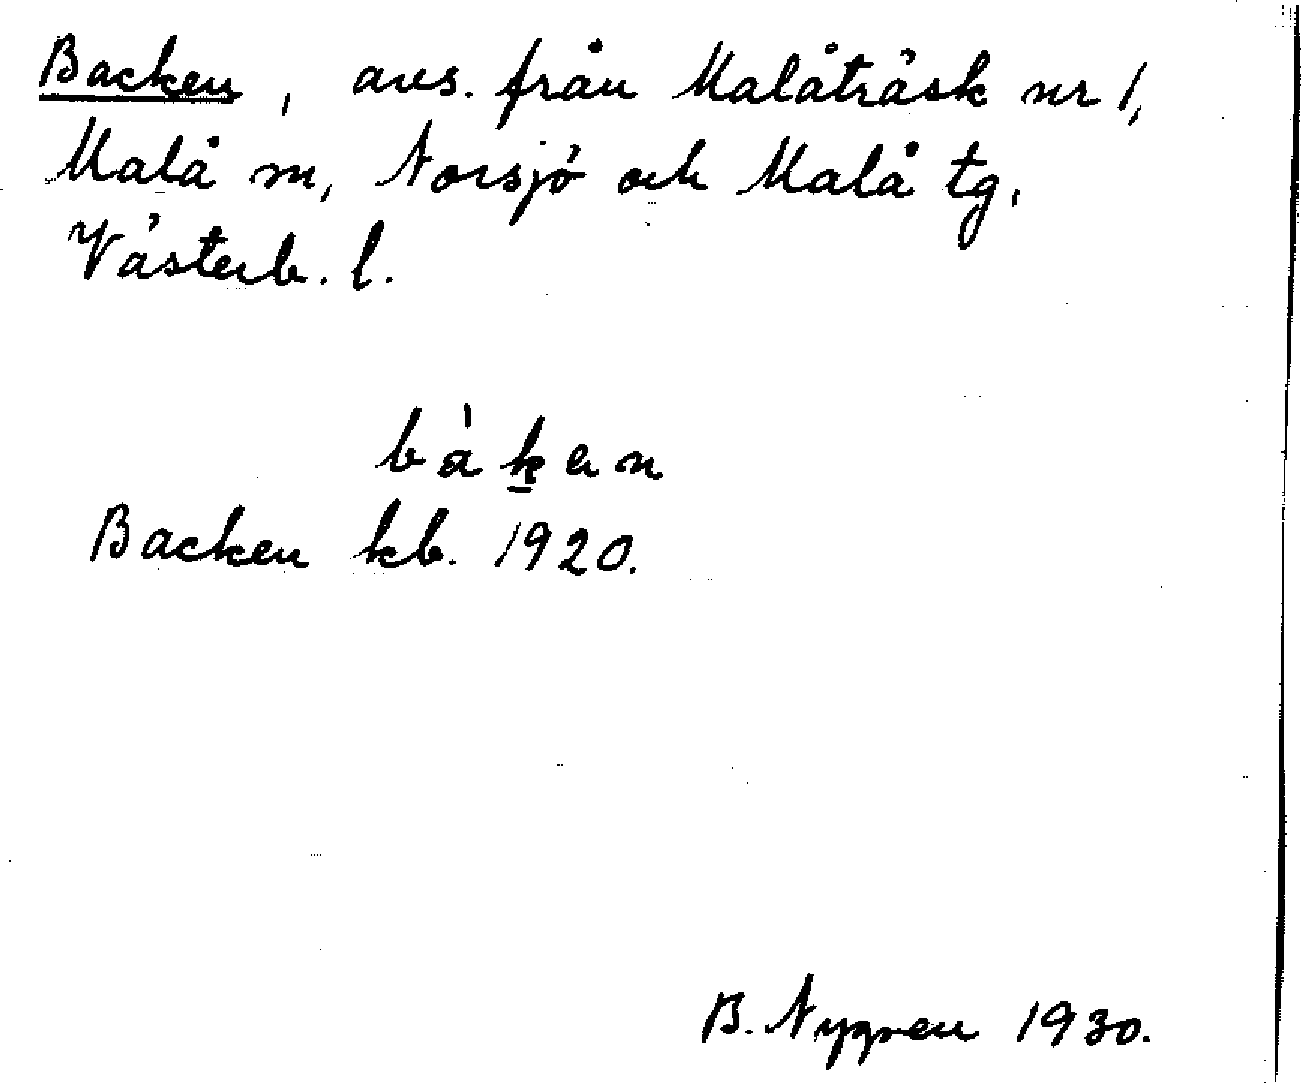 Backen, avs. från Malåträsk nr 1,
Malå sn, Norsjö och Malå tg.
Västerb. l.
bàk̲en
Backen kb. 1920.
B. Nygren 1930.